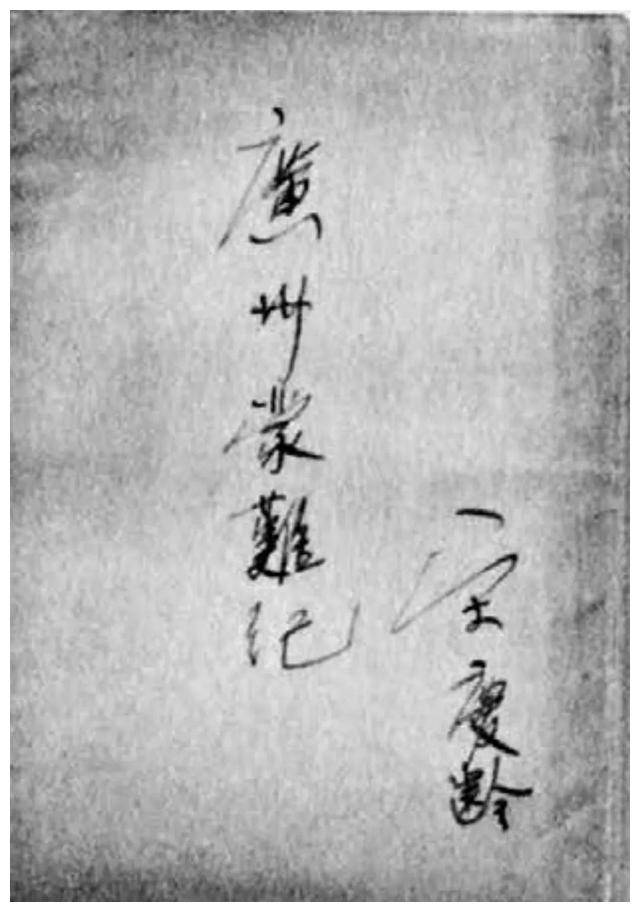 廣州蒙難纪
宋慶齡